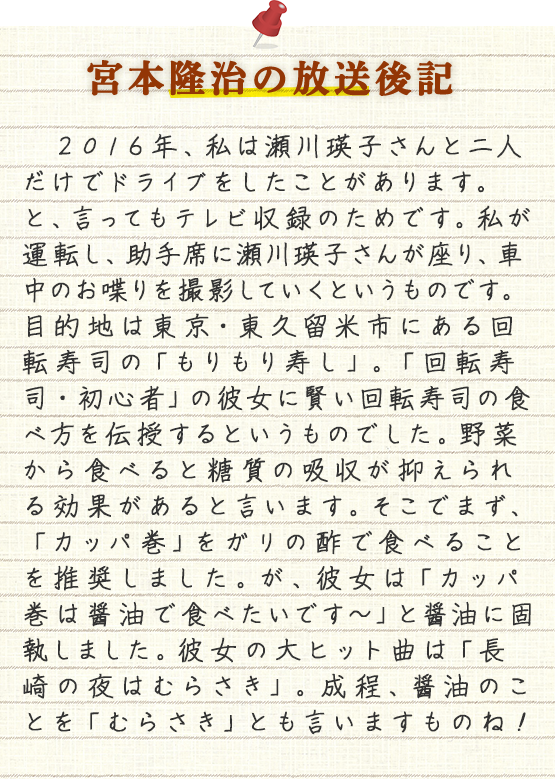 宮本隆治の放送後記
２０１６年、私は瀬川瑛子さんと二人
だけでドライブをしたことがあります。
と、言ってもテレビ収録のためです。私が
運転し、助手席に瀬川瑛子さんが座り、車
中のお喋りを撮影していくというものです。
目的地は東京・東久留米市にある回
転寿司の「もりもり寿し」。「回転寿
司・初心者」の彼女に賢い回転寿司の食
べ方を伝授するというものでした。野菜
から食べると糖質の吸収が抑えられ
る効果があると言います。そこでまず、
「カッパ巻」をガリの酢で食べること
を推奨しました。が、彼女は「カッパ
巻は醤油で食べたいです～」と醤油に固
執しました。彼女の大ヒット曲は「長
崎の夜はむらさき」。成程、醤油のこ
とを「むらさき」とも言いますものね！